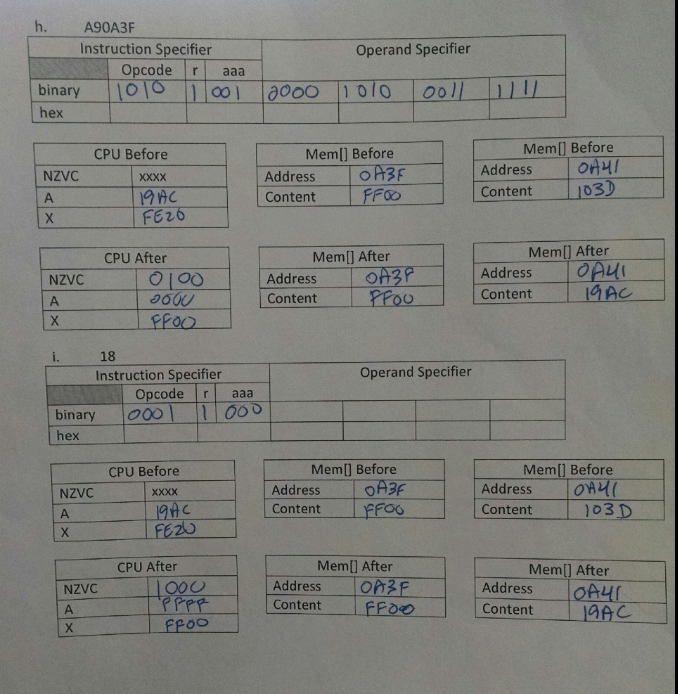 h. A90A3F
Instruction Specifier Operand Specifier
Opcode r aaa
binary 1010 1 001 0000 1010 0011 1111
hex
CPU Before Mem[] Before Mem[] Before
NZVC xxxx Address 0A3F Address 0A41
A 19AC Content FF00 Content 103D
X FE20
CPU After Mem[] After Mem[] After
NZVC 0100 Address 0A3F Address 0A41
A 0000 Content FF00 Content 19AC
X FF00
i. 18
Instruction Specifier Operand Specifier
Opcode r aaa
binary 0001 1 000
hex
CPU Before Mem[] Before Mem[] Before
NZVC xxxx Address 0A3F Address 0A41
A 19AC Content FF00 Content 103D
X FE20
CPU After Mem[] After Mem[] After
NZVC 1000 Address 0A3F Address 0A41
A FFFF Content FF00 Content 19AC
X FF00